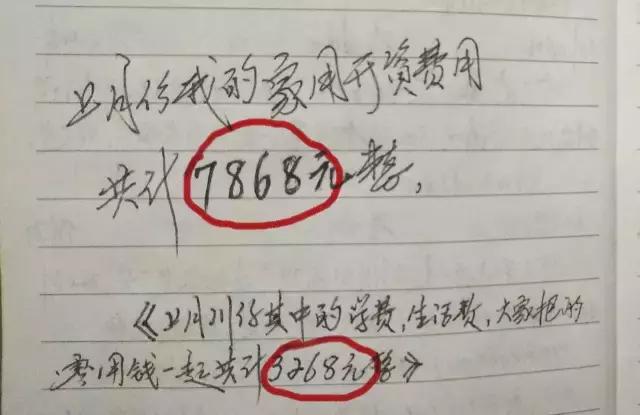 上月份我的家用开资费用
共计7868元整,
《上月川仔其中的学费,生活费,大家把的
零用钱一起共计3268元整》